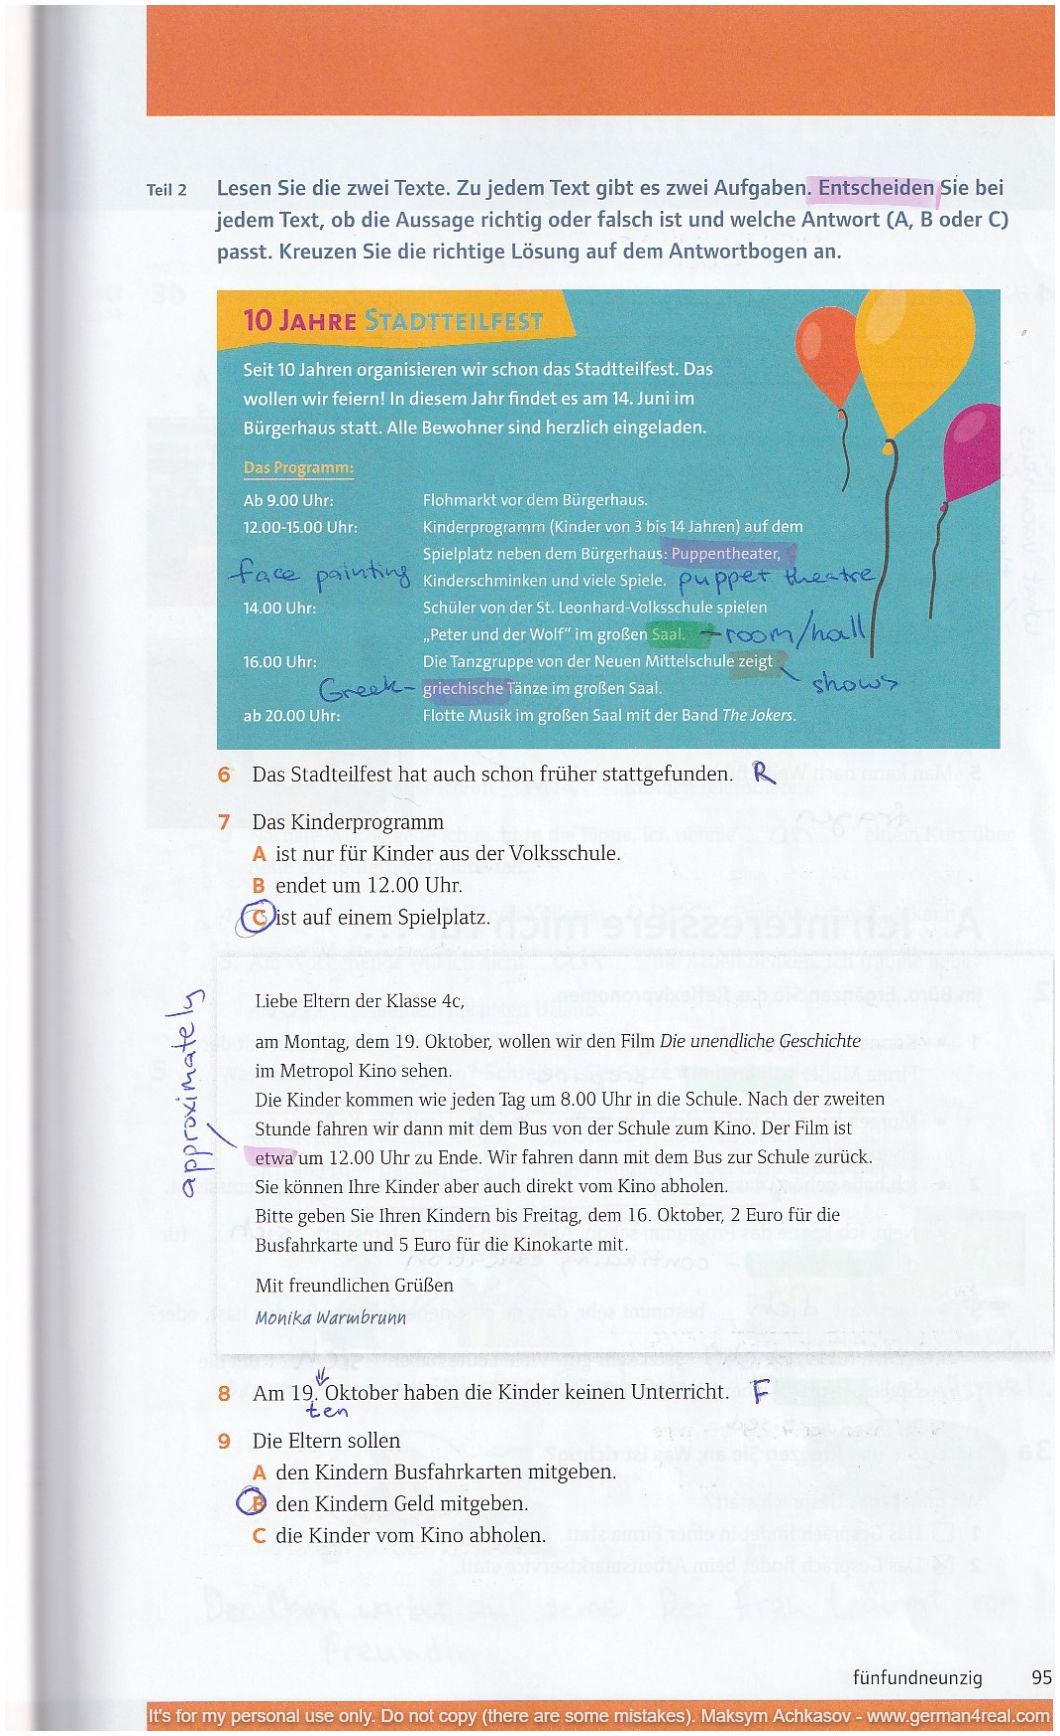 Teil 2 Lesen Sie die zwei Texte. Zu jedem Text gibt es zwei Aufgaben. Entscheiden Sie bei
jedem Text, ob die Aussage richtig oder falsch ist und welche Antwort (A, B oder C)
passt. Kreuzen Sie die richtige Lösung auf dem Antwortbogen an.
10 JAHRE STADTTEILFEST
Seit 10 Jahren organisieren wir schon das Stadtteilfest. Das
wollen wir feiern! In diesem Jahr findet es am 14. Juni im
Bürgerhaus statt. Alle Bewohner sind herzlich eingeladen.
Das Programm:
Ab 9.00 Uhr: Flohmarkt vor dem Bürgerhaus.
12.00-15.00 Uhr: Kinderprogramm (Kinder von 3 bis 14 Jahren) auf dem
Spielplatz neben dem Bürgerhaus: Puppentheater,
face painting Kinderschminken und viele Spiele. puppet theatre
14.00 Uhr: Schüler von der St. Leonhard-Volksschule spielen
„Peter und der Wolf“ im großen Saal. - room/hall
16.00 Uhr: Die Tanzgruppe von der Neuen Mittelschule zeigt
Greek - griechische Tänze im großen Saal. shows
ab 20.00 Uhr: Flotte Musik im großen Saal mit der Band The Jokers.
6 Das Stadteilfest hat auch schon früher stattgefunden. R
7 Das Kinderprogramm
A ist nur für Kinder aus der Volksschule.
B endet um 12.00 Uhr.
C ist auf einem Spielplatz.
Liebe Eltern der Klasse 4c,
am Montag, dem 19. Oktober, wollen wir den Film Die unendliche Geschichte
im Metropol Kino sehen.
Die Kinder kommen wie jeden Tag um 8.00 Uhr in die Schule. Nach der zweiten
Stunde fahren wir dann mit dem Bus von der Schule zum Kino. Der Film ist
approximately
etwa um 12.00 Uhr zu Ende. Wir fahren dann mit dem Bus zur Schule zurück.
Sie können Ihre Kinder aber auch direkt vom Kino abholen.
Bitte geben Sie Ihren Kindern bis Freitag, dem 16. Oktober, 2 Euro für die
Busfahrkarte und 5 Euro für die Kinokarte mit.
Mit freundlichen Grüßen
Monika Warmbrunn
8 Am 19. Oktober haben die Kinder keinen Unterricht. F
ten
9 Die Eltern sollen
A den Kindern Busfahrkarten mitgeben.
B den Kindern Geld mitgeben.
C die Kinder vom Kino abholen.
fünfundneunzig 95
It's for my personal use only. Do not copy (there are some mistakes). Maksym Achkasov - www.german4real.com